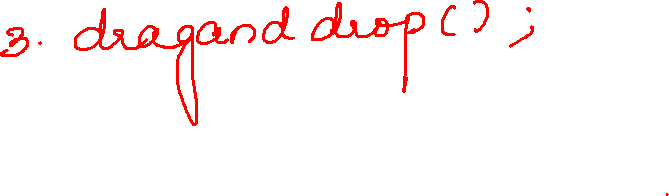 3. dragand drop();